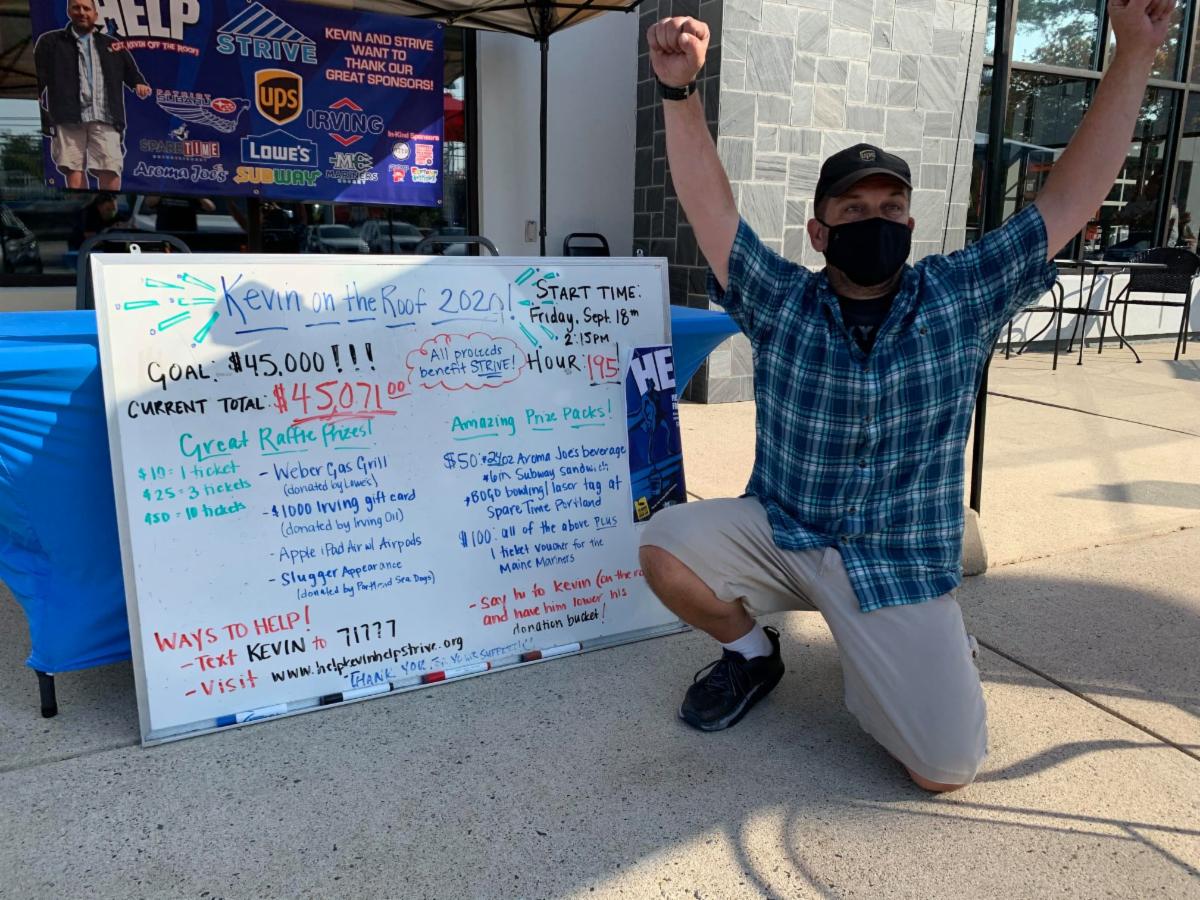 HELP
GET KEVIN OFF THE ROOF!
STRIVE
KEVIN AND STRIVE
WANT TO
THANK OUR
GREAT SPONSORS!
PATRIOT
SUBARU
ups
IRVING
In-Kind Sponsors
SPARETIME
ENTERTAINMENT
LOWE'S
Aroma Joe's
SUBWAY
MARINERS
Kevin on the Roof 2020!
START TIME:
Friday, Sept. 18th
2:15PM
HOUR: 195!
GOAL: $45,000!!!
CURRENT TOTAL: $45,071.00
All proceeds
benefit STRIVE!
Great Raffle Prizes!
$10 = 1 ticket
$25 = 3 tickets
$50 = 10 tickets
- Weber Gas Grill
(donated by Lowe's)
- $1000 Irving gift card
(donated by Irving Oil)
- Apple iPad Air w/ Airpods
- Slugger Appearance
(donated by Portland Sea Dogs)
Amazing Prize Packs!
$50: *24oz Aroma Joe's beverage
*6in Subway sandwich
*BOGO bowling/laser tag at
Spare Time Portland
$100: all of the above PLUS
1 ticket voucher for the
Maine Mariners
- say hi to Kevin (on the
and have him lower his
donation bucket!
WAYS TO HELP!
- Text KEVIN to 71777
- Visit www.helpkevinhelpstrive.org
THANK YOU YOUR SUPPORT!
HE
ups